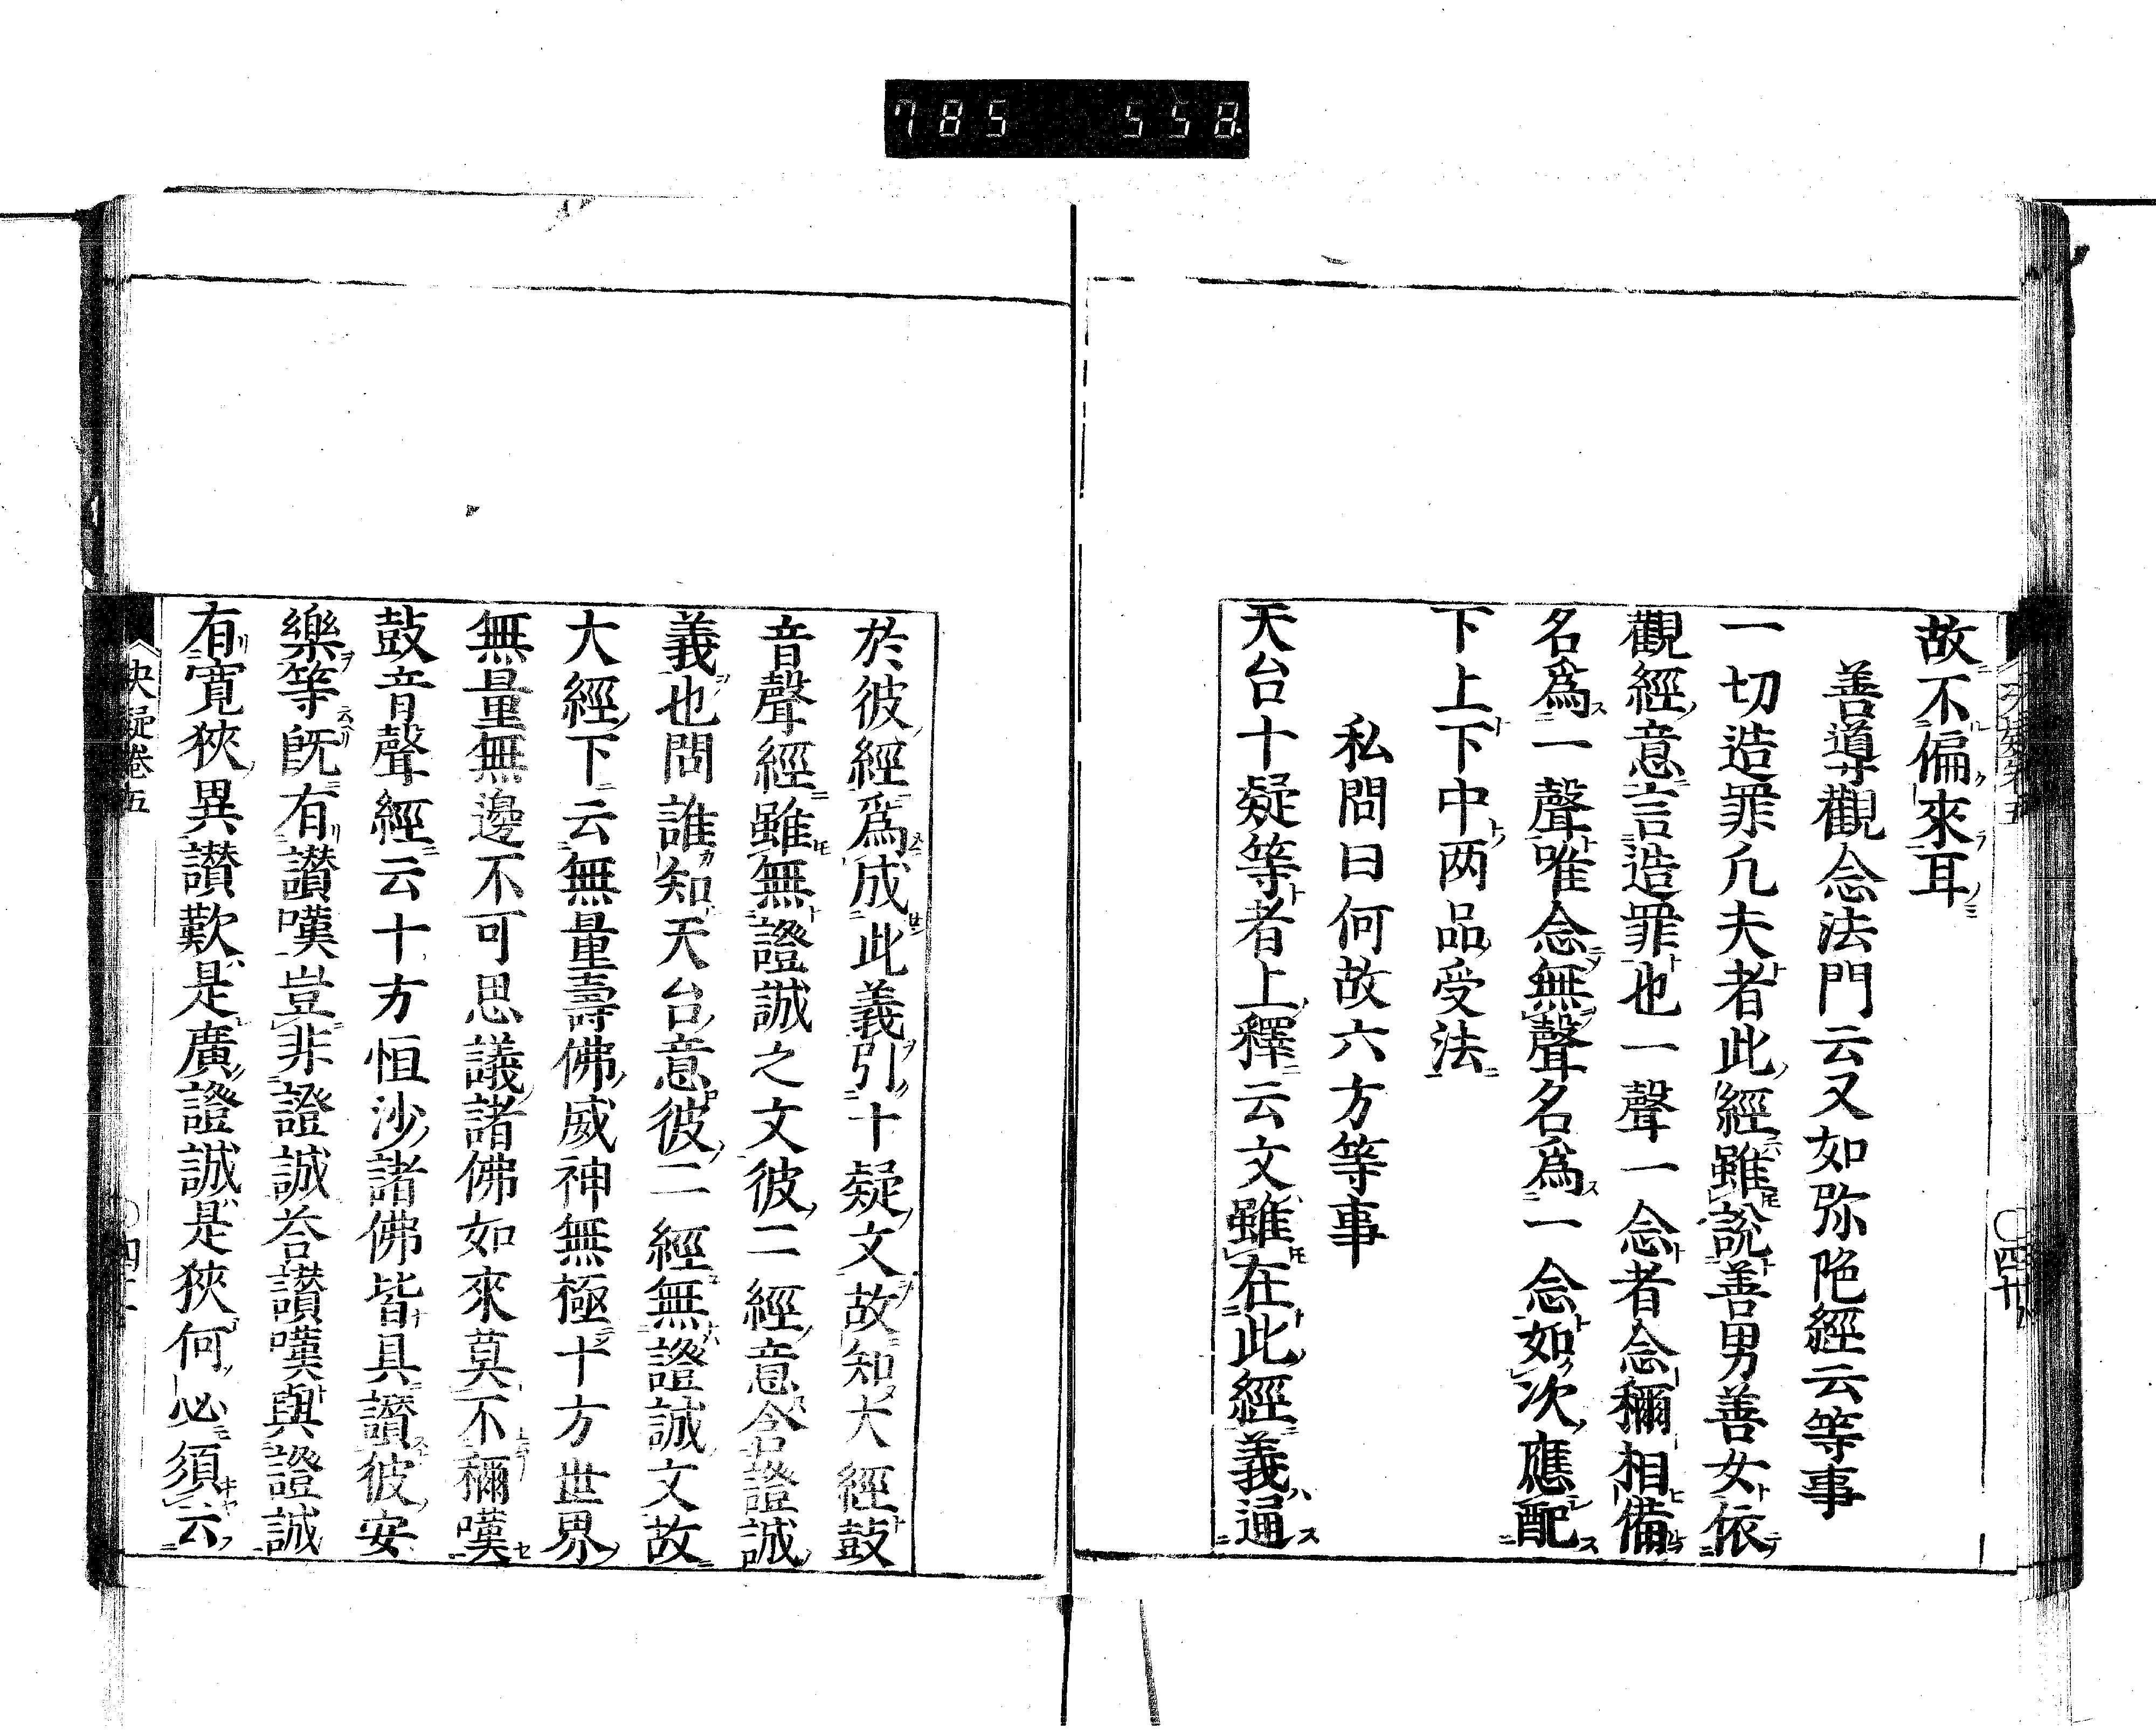 785 558
故不偏來耳
善導觀念法門云又如弥陁經云等事
一切造罪凡夫者此經雖說善男善女依
觀經意言造罪也一聲一念者念稱相備
名爲一聲唯念無聲名爲一念如次應配
下上下中两品受法
私問曰何故六方等事
天台十疑等者上釋云文雖在此經義通
於彼經爲成此義引十疑文故知大經鼓
音聲經雖無證誠之文彼二經意含證誠
義也問誰知天台意彼二經無證誠文故
大經下云無量壽佛威神無極十方世界
無量無邊不可思議諸佛如來莫不稱嘆
鼓音聲經云十方恒沙諸佛皆具讃彼安
樂等既有讃嘆豈非證誠荅讃嘆與證誠
有寛狹異讃歎是廣證誠是狹何必須云
决疑卷五